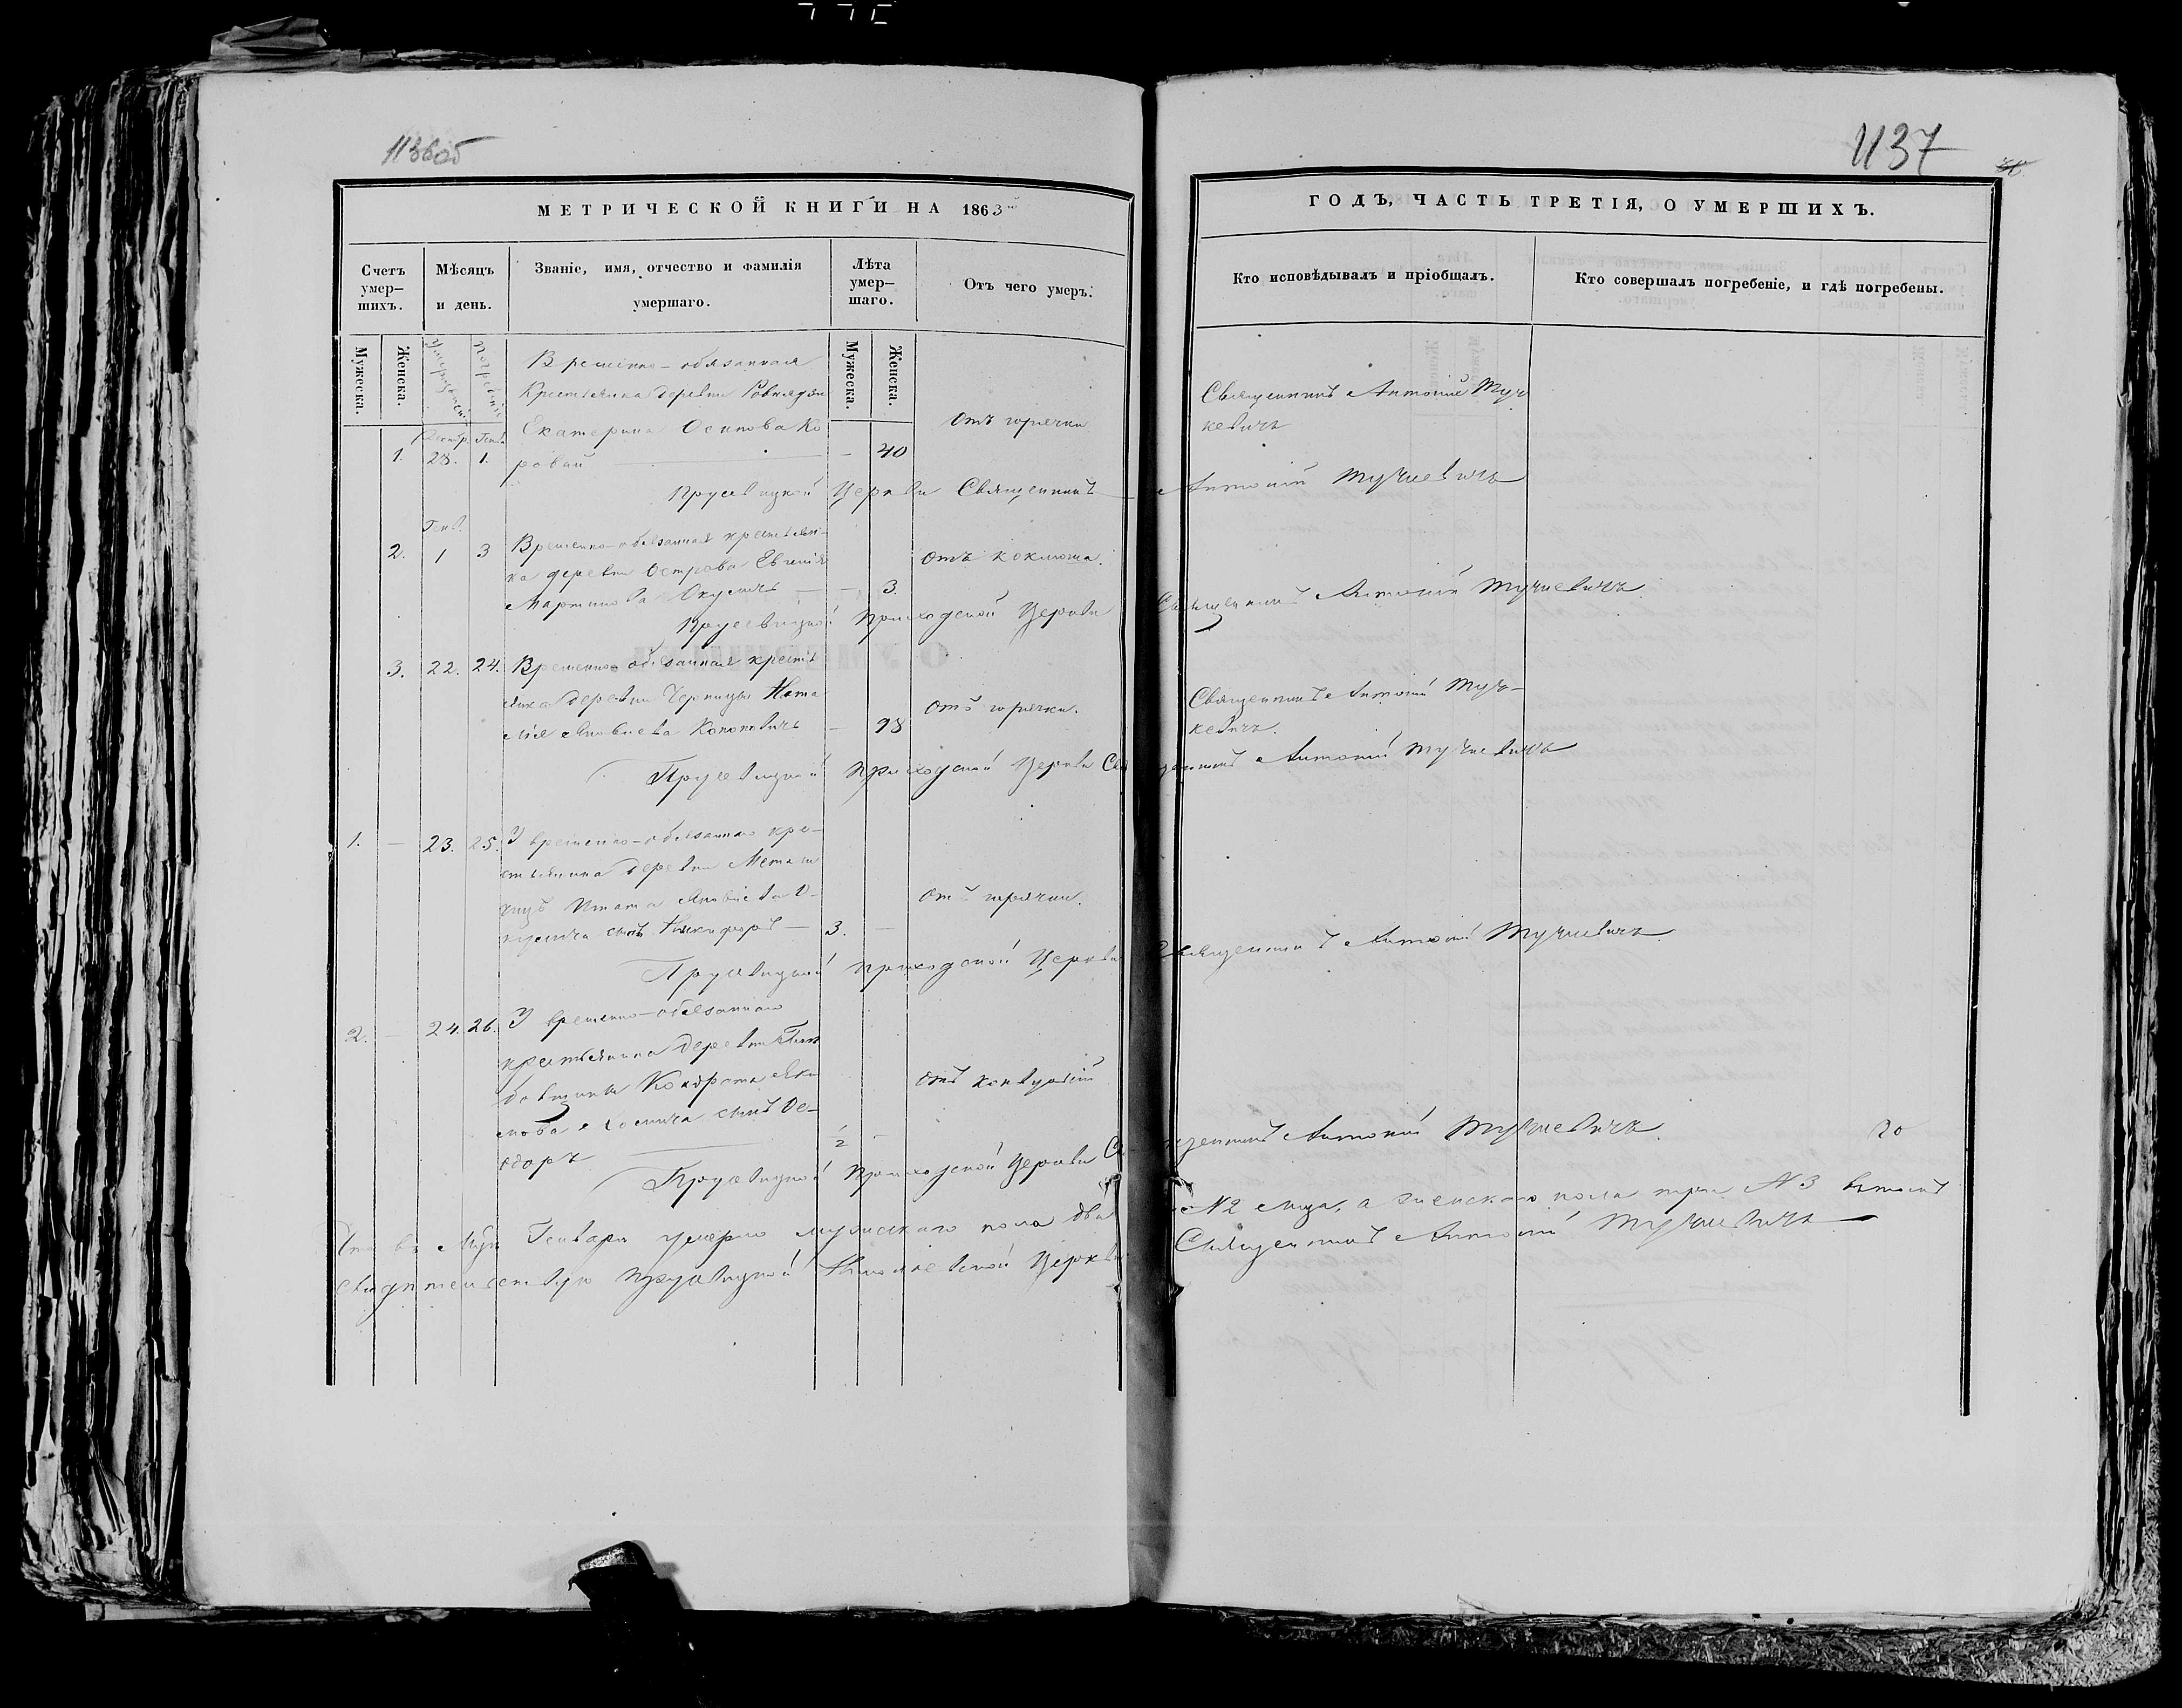 1136об
1137
МЕТРИЧЕСКОЙ КНИГИ НА 1863
ГОДЪ, ЧАСТЬ ТРЕТІЯ, О УМЕРШИХЪ.
Счетъ умер- шихъ.
Мѣсяцъ и день.
Званіе, имя, отчество и фамилія умершаго.
Лѣта умер- шаго.
Отъ чего умеръ.
Кто исповѣдывалъ и пріобщалъ.
Кто совершалъ погребеніе, и гдѣ погребены.
Мужеска.
Женска.
Мужеска.
Женска.
Временно-обязанная
Крестьянка деревни
Екатерина Осипова Ко
1. 28. 1. ровай — 40
Отъ горячки
Священникъ Антоній Туч
кевичъ
Прусевицкой Церкви Священникъ Антоній Тучкевичъ
Генв.
2. 1 3 Временно-обязанная крестьян-
ка деревни Острова Евгенія
Мартинова Окуличъ — 3.
Отъ коклюша.
Прусевицкой Приходской Церкви Священникъ Антоній Тучкевичъ
3. 22. 24. Временно-обязанная кресть
янка деревни Черницы Ната
лія Яковлева Кононовичъ — 98
Отъ горячки.
Священникъ Антоній Туч-
кевичъ.
Прусевицкой Приходской Церкви Священникъ Антоній Тучкевичъ
1. — 23. 25. У временно-обязаннаго кре-
стьянина деревни
Игната Яковлева О-
кулича сынъ Никифоръ — 3. —
Отъ горячки.
Прусевицкой Приходской Церкви Священникъ Антоній Тучкевичъ
2. — 24. 26. У временно-обязаннаго
крестьянина деревни
Кондрата Яки
мова сынъ Ѳе-
одоръ 1/2 —
Отъ конвульсій
Прусевицкой Приходской Церкви Священникъ Антоній Тучкевичъ
20
Что въ Мцѣ Генварѣ умерло мужескаго пола два №2 лица, а женскаго пола три №3 въ томъ
свидѣтельствую Прусевицкой Николаевской Церкви Священникъ Антоній Тучкевичъ